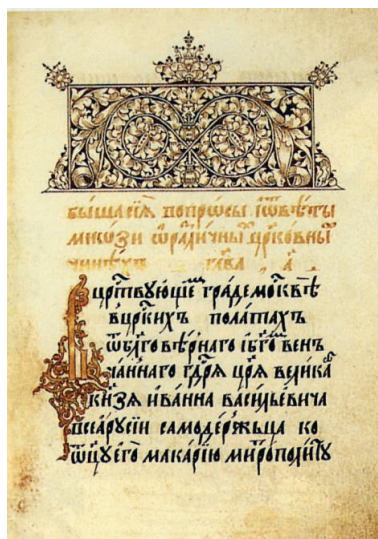 быша сїѧ вопрѡсы їѿвѣты
мнѡзи ѿразличны црковны
чинѣхъ глава а
црⷭтвующеⷨ граде москвѣ
вцрⷭкихъ полатахъ
ѿблг҃овѣрнаго їбг҃овен
чаннаго гдⷭрѧ црѧ велика
кнѧзѧ иванна васильевича
всеарусїи самодержьца ко
ѿц҃уего макарїю митрополиту